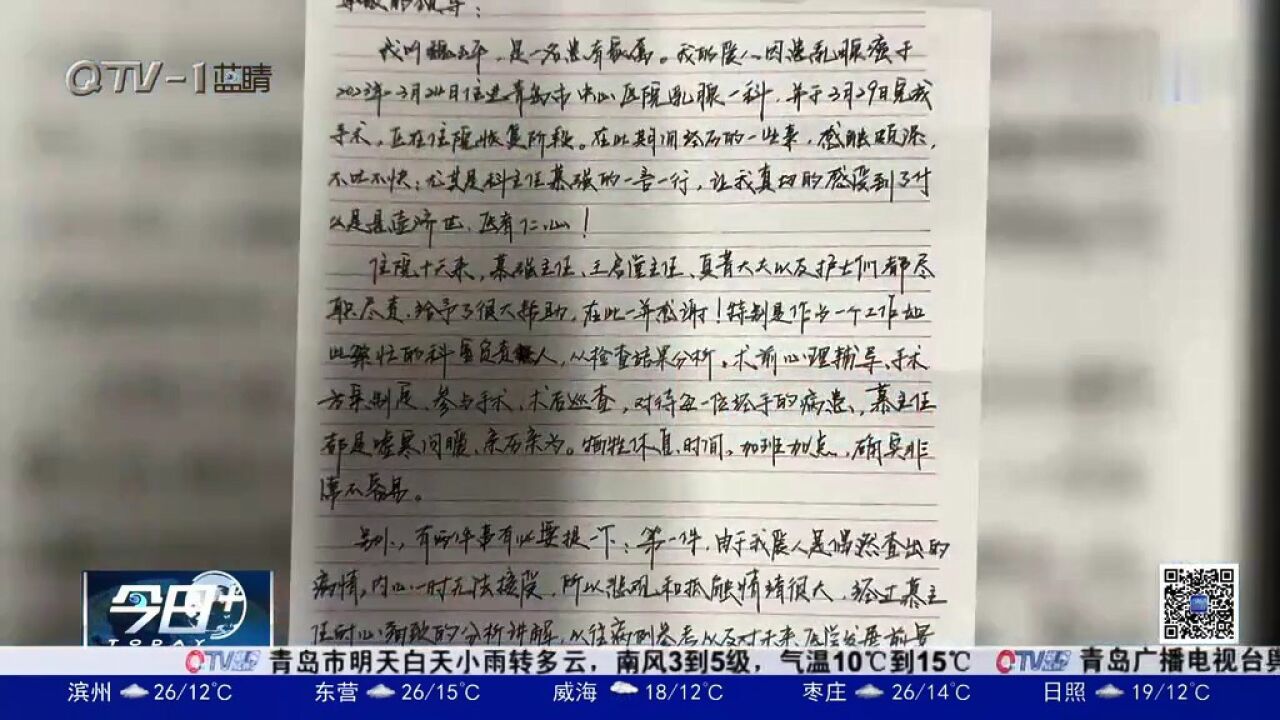 尊敬的领导：
QTV-1蓝睛
我叫 平，是一名患者家属。我的爱人因患乳腺癌于
2023年3月24日住进青岛市中心医院乳腺一科，并于3月29日完成
手术，正在住院恢复阶段。在此期间经历的一些事，感触颇深，
不吐不快；尤其是科主任綦强的一言一行，让我真切的感受到了什
么是悬壶济世、医者仁心！
住院十天来，綦强主任、王启堂主任、夏青大夫以及护士们都尽
职尽责，给予了很大帮助，在此一并感谢！特别是作为一个工作如
此繁忙的科室负责人，从检查结果分析、术前心理辅导、手术
方案制定、参与手术、术后巡查，对待每一位经手的病患，綦主任
都是嘘寒问暖、亲历亲为。牺牲休息时间，加班加点，确实非
常不容易。
另外，有两件事有必要提一下：第一件，由于我爱人是偶然查出的
病情，内心一时无法接受，所以悲观和抵触情绪很大，经过綦主
任耐心细致的分析讲解，以往病例参考以及对未来医学发展前景
今日+
TODAY
QTV 青岛市明天白天小雨转多云，南风3到5级，气温10℃到15℃ QTV 青岛广播电视台
滨州 26/12℃ 东营 26/15℃ 威海 18/12℃ 枣庄 26/14℃ 日照 19/12℃